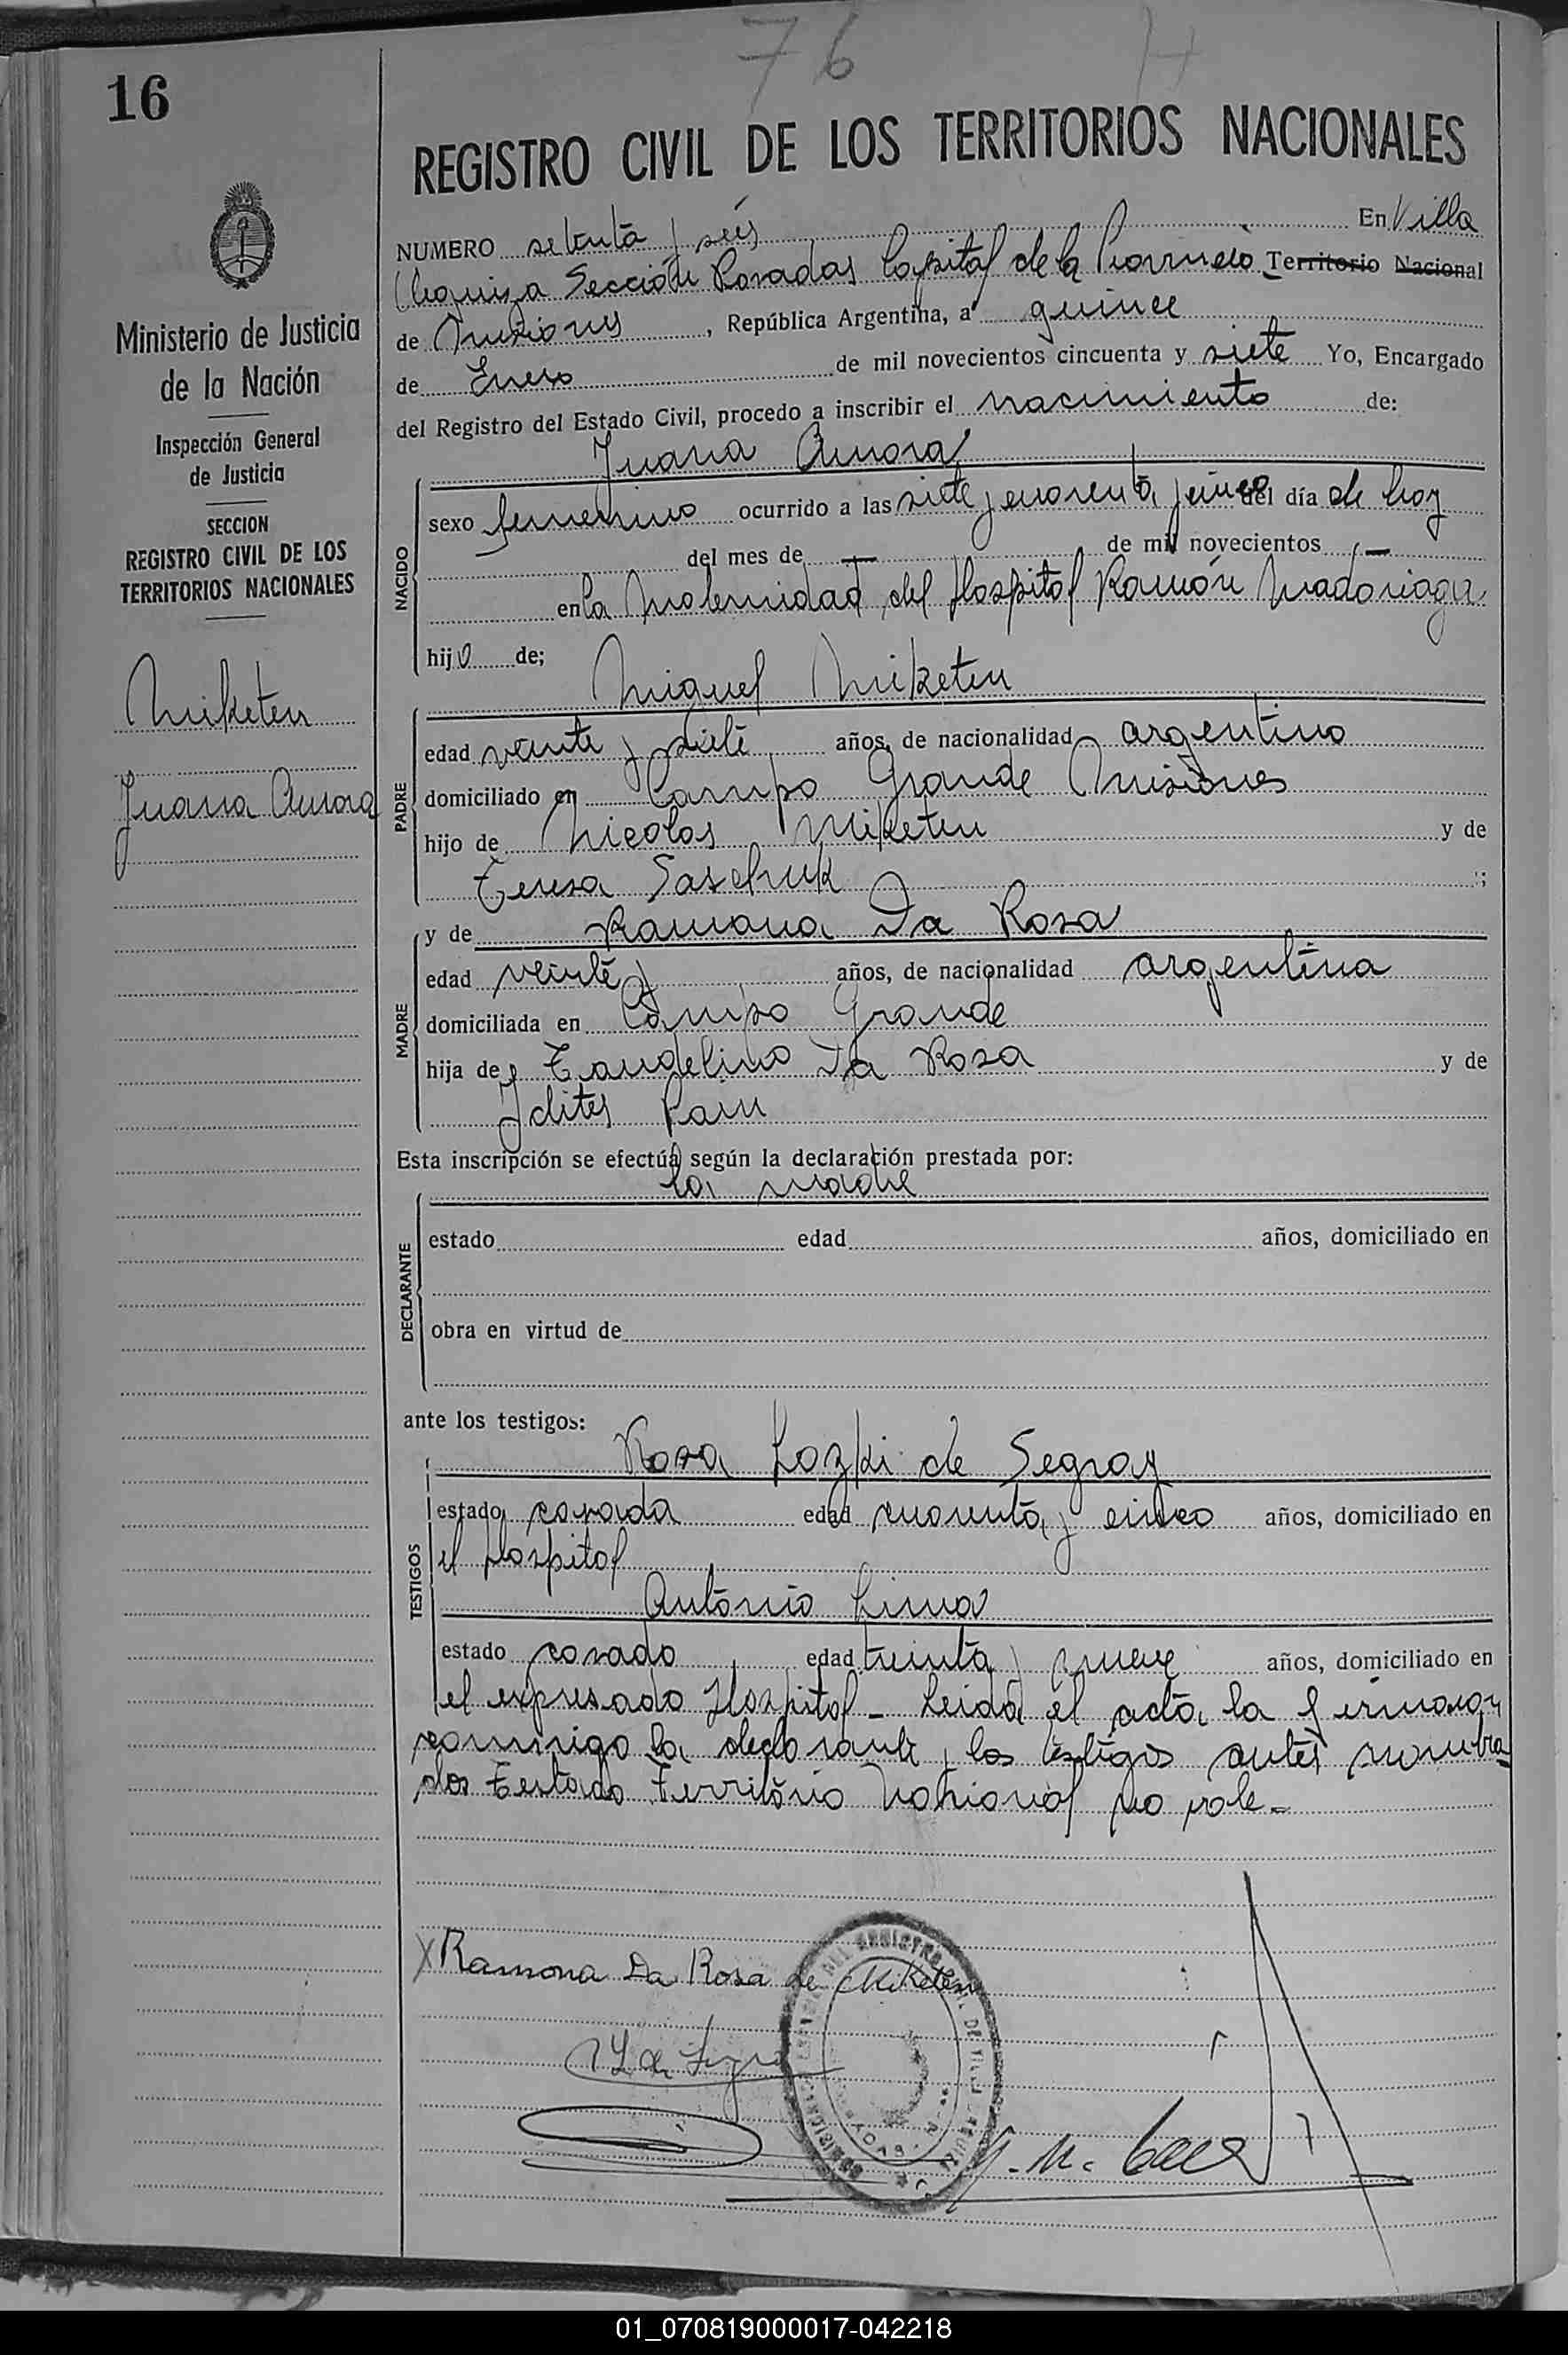 76 H
16
REGISTRO CIVIL DE LOS TERRITORIOS NACIONALES
NUMERO setenta y seis En Villa
Urquiza Sección Posadas Capital de la Provincia Territorio Nacional
de Misiones, República Argentina, a quince
de Enero de mil novecientos cincuenta y siete Yo, Encargado
del Registro del Estado Civil, procedo a inscribir el nacimiento de:
Juana Aurora
NACIDO
sexo femenino ocurrido a las siete y cuarenta y cinco del día de hoy
del mes de — de mil novecientos —
en la Maternidad del Hospital Ramón Madariaga
hija de;
Miguel Miketen
PADRE
edad veinte y siete años, de nacionalidad argentino
domiciliado en Campo Grande Misiones
hijo de Nicolas Miketen y de
Teresa Saschuk ;
MADRE
y de Ramona Da Rosa
edad veinte años, de nacionalidad argentina
domiciliada en Campo Grande
hija de Da Rosa y de
Esta inscripción se efectúa según la declaración prestada por:
la madre
DECLARANTE
estado edad años, domiciliado en
obra en virtud de
ante los testigos:
Rosa Lozki de Segray
TESTIGOS
estado casada edad cuarenta y cinco años, domiciliado en
el Hospital
Antonio Lima
estado casado edad treinta y nueve años, domiciliado en
el expresado Hospital - Leida el acta, la firmaron
conmigo la declarante y los testigos antes nombra
dos Testado Territorio Nacional no vale -
X Ramona Da Rosa de Miketen
Ministerio de Justicia
de la Nación
Inspección General
de Justicia
SECCION
REGISTRO CIVIL DE LOS
TERRITORIOS NACIONALES
Miketen
Juana Aurora
01_070819000017-042218